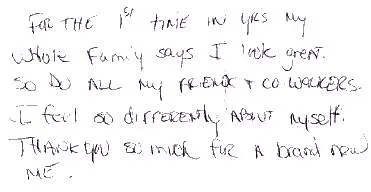 FOR THE 1st TIME IN YRS MY
Whole Family says I look great.
SO DO ALL MY FRIENDS + CO WORKERS.
I feel SO DIFFERENTLY ABOUT Myself.
THANK YOU SO MUCH FOR A brand new
ME.